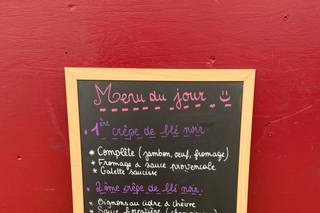 Menu du jour
1ère crêpe de blé noir.
* Complète (jambon, oeuf, fromage)
* Fromage & sauce provençale
* Galette saucisse
2ème crêpe de blé noir.
* Oignons au cidre & chèvre
* Sauce forestière